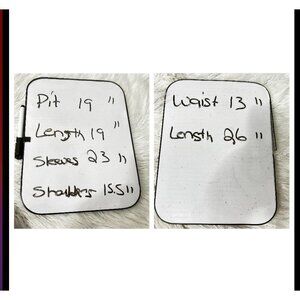 Pit 19 "
Length 19 "
Sleeves 23 "
Shoulders 15.5 "
Waist 13 "
Length 26 "